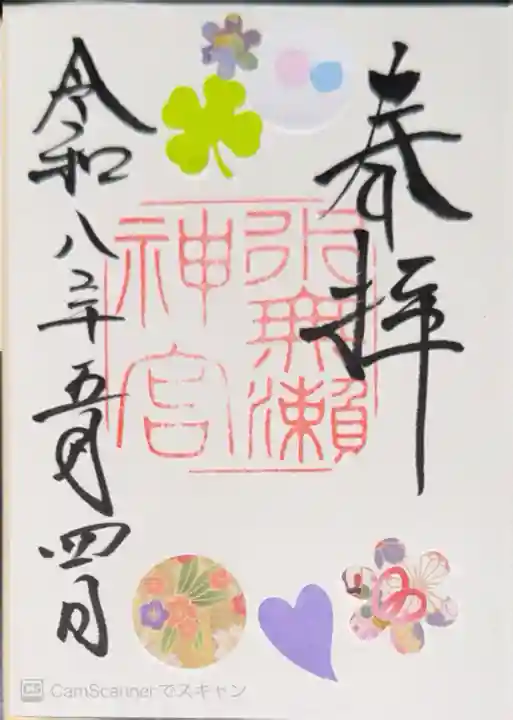 奉拝
水無瀬
神宮
令和八年五月四日
CS CamScannerでスキャン